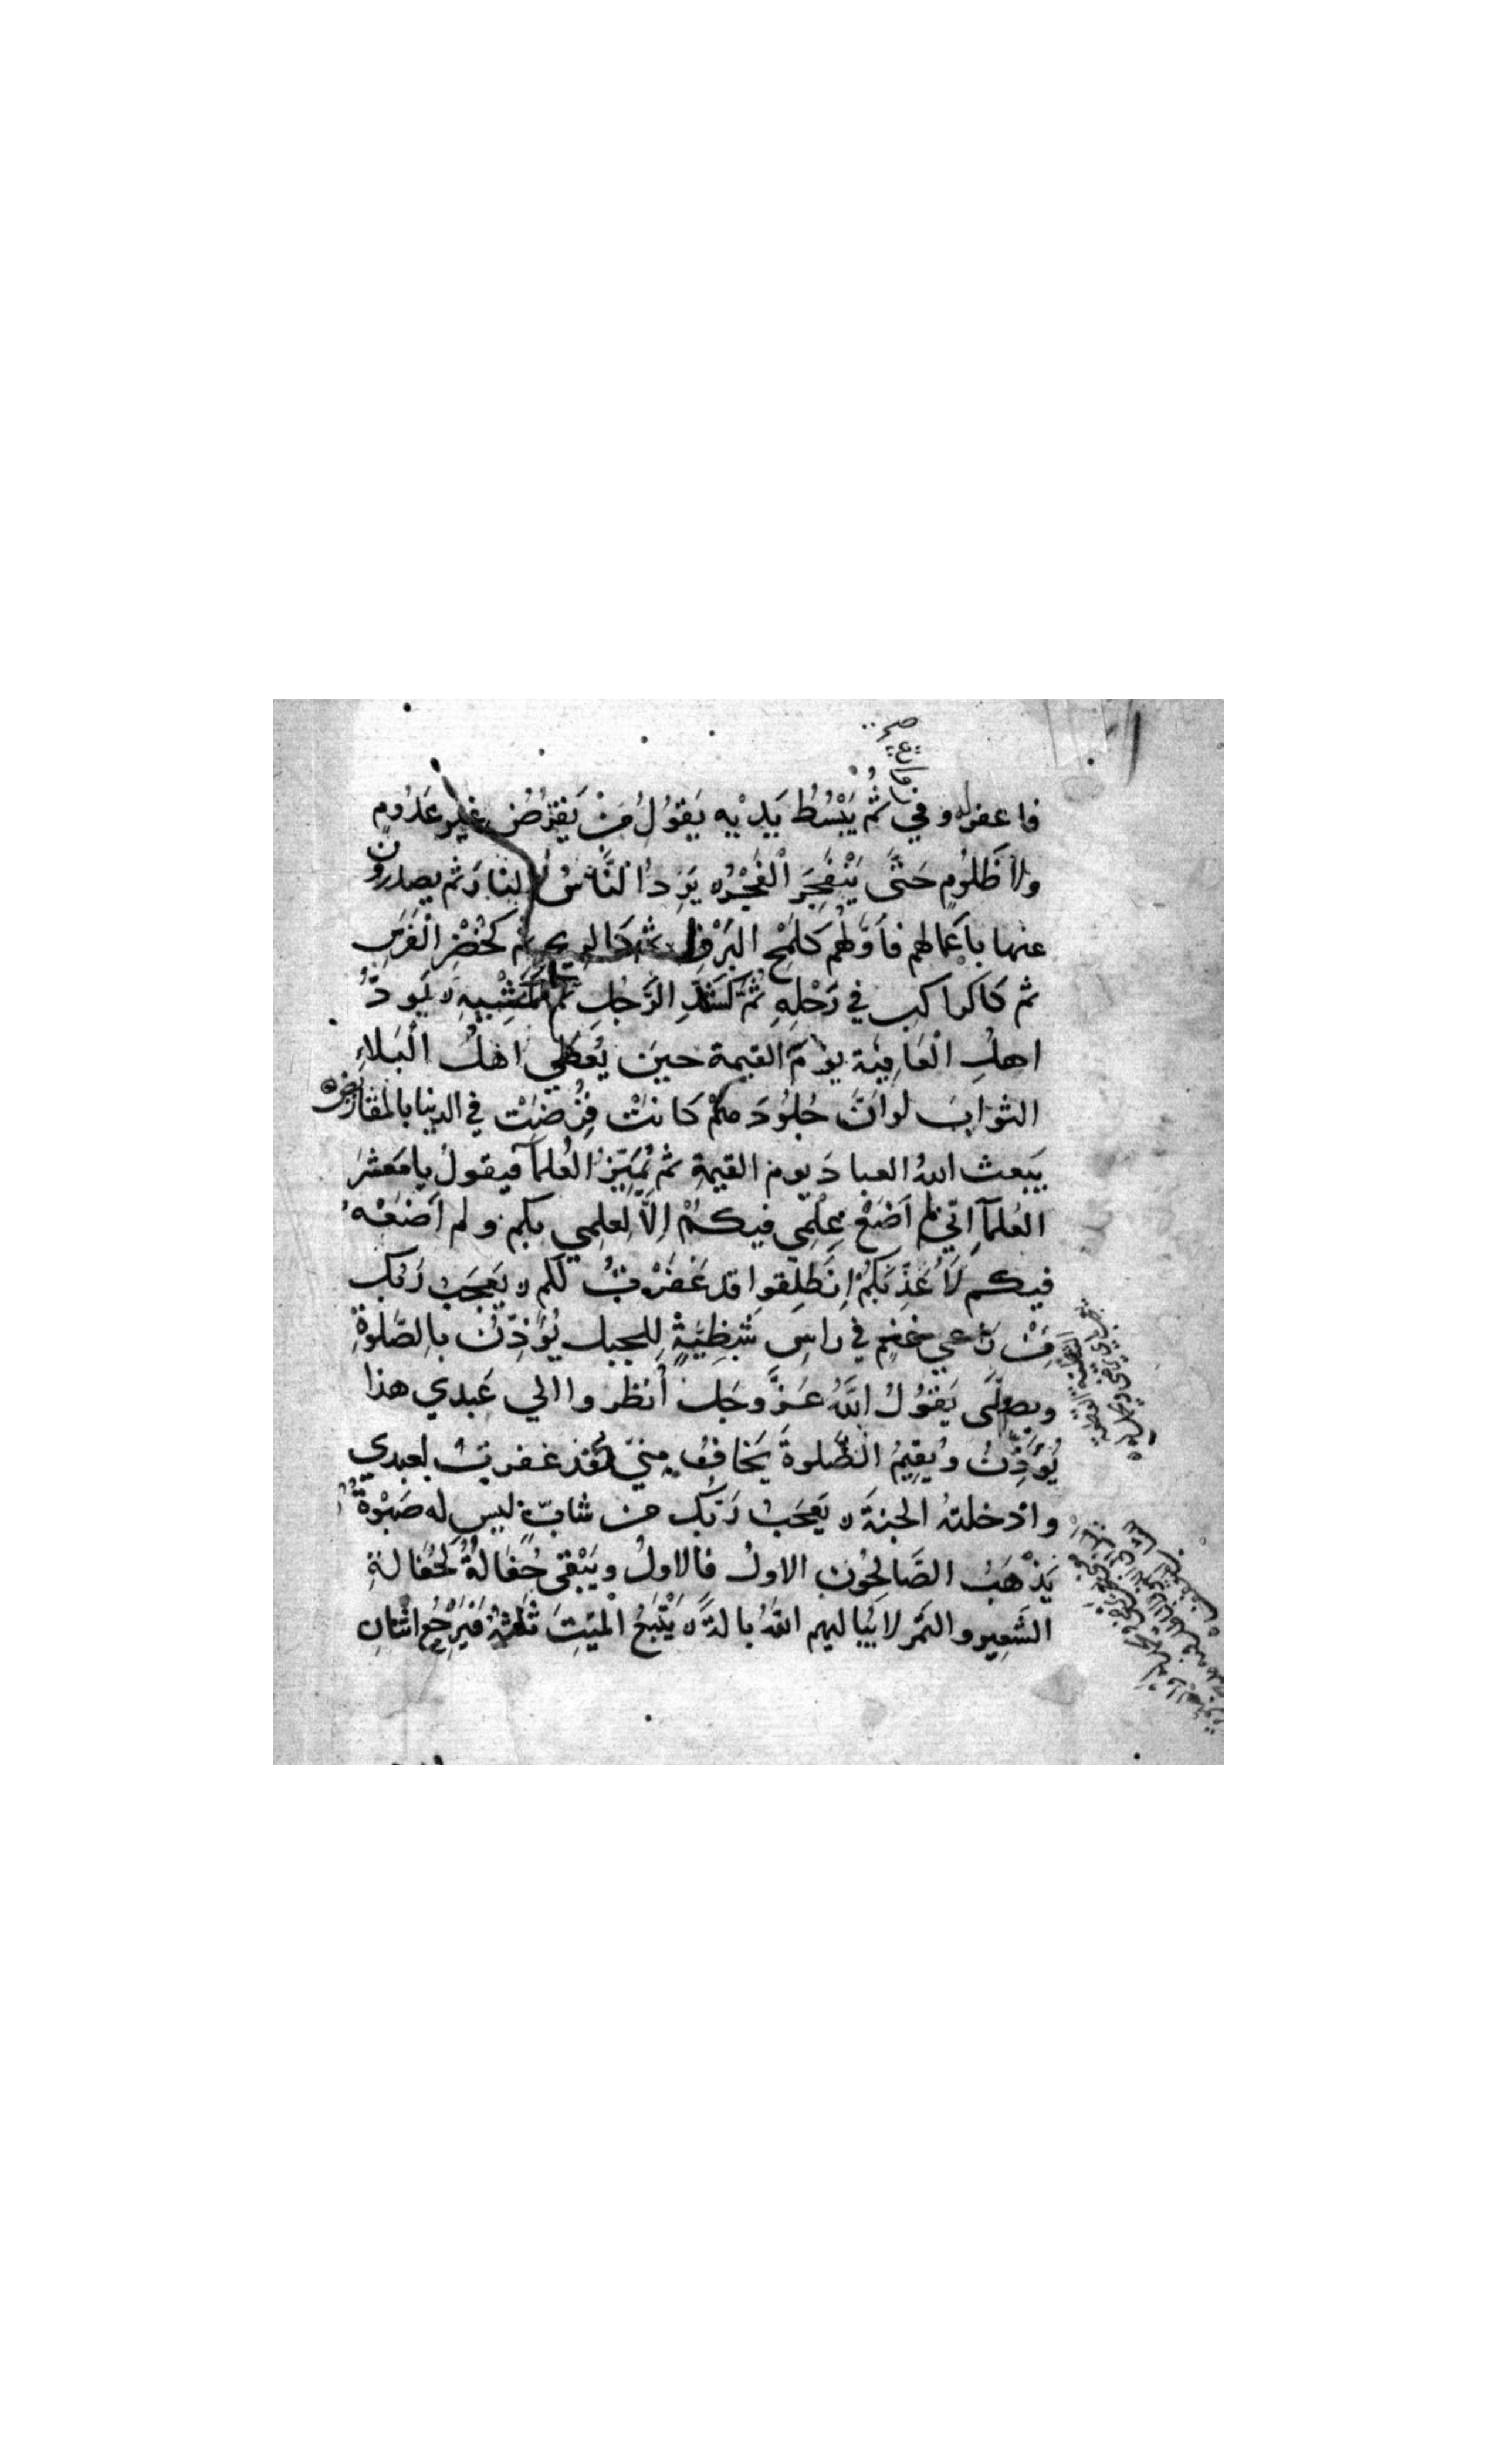 فاغفر له وفي ثُمَّ يَبْسُطُ يَدَيْهِ يَقُولُ مَنْ يُقْرِضُ غَيْرَ عَدُومٍ
ولا ظَلُومٍ حَتَّى يَنْفَجِرَ الْفَجْرُ ه يَرِدُ النَّاسُ النارَ ثم يصدرون
عنها بأَعْمَالهم فأَوَّلهُم كَلَمْحِ البَرْقِ ثم كالريح ثم كَحُضْرِ الْفَرَسِ
ثم كالراكب في رَحْلِهِ ثُمَّ كَشَدِّ الرَّجُلِ ثم كَمَشْيِهِ ه يَوَدُّ
اهلُ الْعَافِيَة يوْمَ القيمة حينَ يُعْطَي اهْلُ الْبَلاءِ
الثوَابَ لو اَنَّ جُلُودَهمْ كَانَتْ قُرِضَتْ في الدنيا بالمقاريض ه
يَبعث اللهُ العبادَ يوم القيمةِ ثم يُمَيِّزُ العُلمآءَ فيقولُ يا مَعْشَرَ
العُلمآءِ اِنّي لم اَضَعْ عِلْمِي فيكُمْ اِلَّا لِعلمِي بكم ولم اَضَعْهُ
فيكم لِأُعَذِّبَكُمْ اِنْطَلِقوا قد غَفَرْتُ لكم ه يَعْجَبُ رَبُّكَ
مِنْ رَاعي غنمٍ في راسِ شَظِيَّةٍ لِلجبل يُؤَذِّنُ بِالصَّلوةِ
ويصلّى يَقُولُ اللَّهُ عَزَّ وجَلَّ أُنظروا الي عَبدي هذا
يُؤَذِّنُ وَيُقِيمُ الصَّلوةَ يَخَافُ مِنّي قد غفرتُ لعبدي
وادخلتُه الجنةَ ه يَعجَبُ رَبُّكَ من شابٍّ ليس له صَبْوَةٌ
يَذْهَبُ الصَّالِحُونَ الاولُ فالاولُ ويَبْقَى حُفَالَةٌ كَحُفالةِ
الشَعِيرِ والتَمْرِ لا يُبَاليهم اللهُ بالةً ه يَتْبَعُ الْمَيِّتَ ثَلثةٌ فَيَرْجِعُ اثنانِ